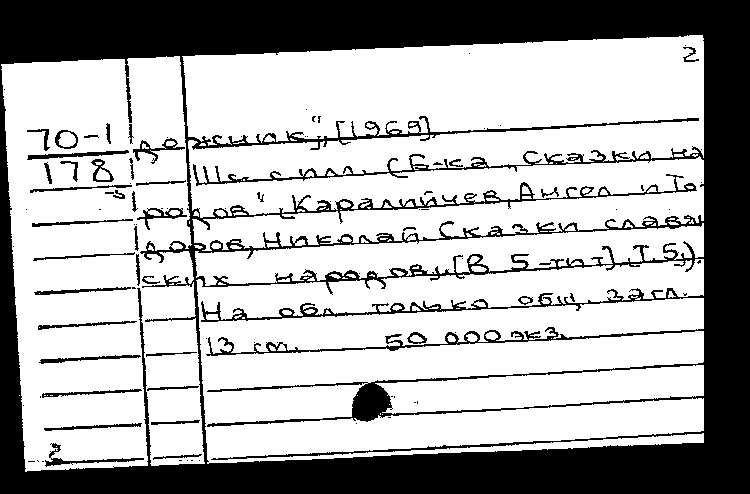 2
70-1 дожник", [1969].
178 111 с. с илл. (Б-ка „Сказки на
-5 родов". Каралийчев, Ангел и То-
доров, Николай. Сказки славян
ских народов. [В 5-ти т.] Т. 5.).
На обл. только общ. загл.
13 см. 50 000 экз.
2